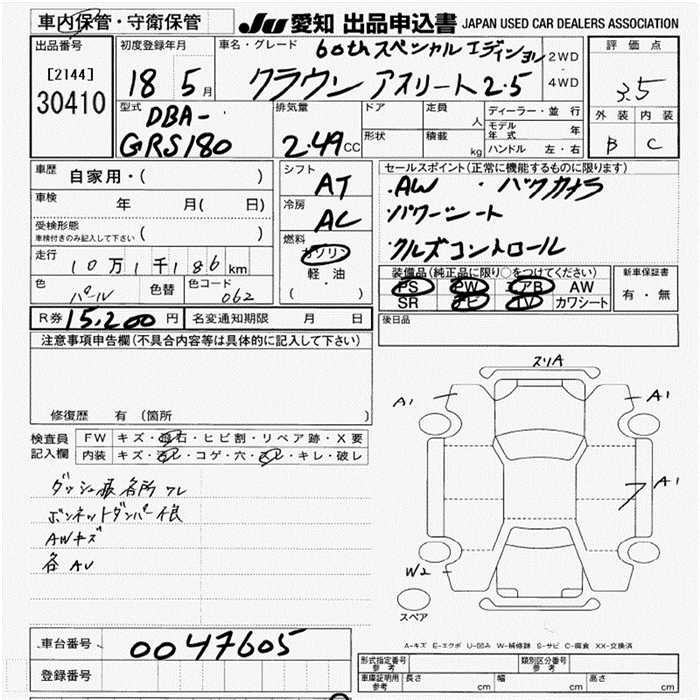 車内保管・守衛保管
JU 愛知 出品申込書 JAPAN USED CAR DEALERS ASSOCIATION
出品番号
[2144]
30410
初度登録年月
18 5月
車名・グレード
60thスペシャルエディション
クラウン アスリート2.5
2WD
4WD
評価点
3.5
外装 内装
B C
型式
DBA-
GRS180
排気量
2.49cc
ドア
定員
人
形状
積載
kg
ディーラー・並行
モデル年式 年
ハンドル 左・右
車歴
自家用・( )
車検
年 月( 日)
受検形態
車検付きのみ記入して下さい ( )
走行
10万1千186km
色
パール
色替
色コード
062
シフト
AT
冷房
AC
燃料
ガソリン
軽油
( )
セールスポイント(正常に機能するものに限ります)
.AW ・バックカメラ
パワーシート
クルズコントロール
装備品(純正品に限り○をつけてください)
PS PW AB AW
SR ナビ TV カワシート
新車保証書
有・無
後日品
R券 15,200円
名変通知期限 月 日
注意事項申告欄(不具合内容等は具体的に記入して下さい)
修復歴 有(箇所 )
検査員
記入欄
FW キズ・飛石・ヒビ割・リペア跡・X要
内装 キズ・汚レ・コゲ・穴・スレ・キレ・破レ
ダッシュ板各所ワレ
ボンネットダンパー不良
AWキズ
各AU
スリA
A1
A1
A1
W2
スペア
A-キズ E-エクボ U-凹み W-補修跡 S-サビ C-腐食 XX-交換済
車台番号
0047605
登録番号
形式指定番号
参考
類別区分番号
参考
車庫証明用
参考
長さ cm
幅 cm
高さ cm